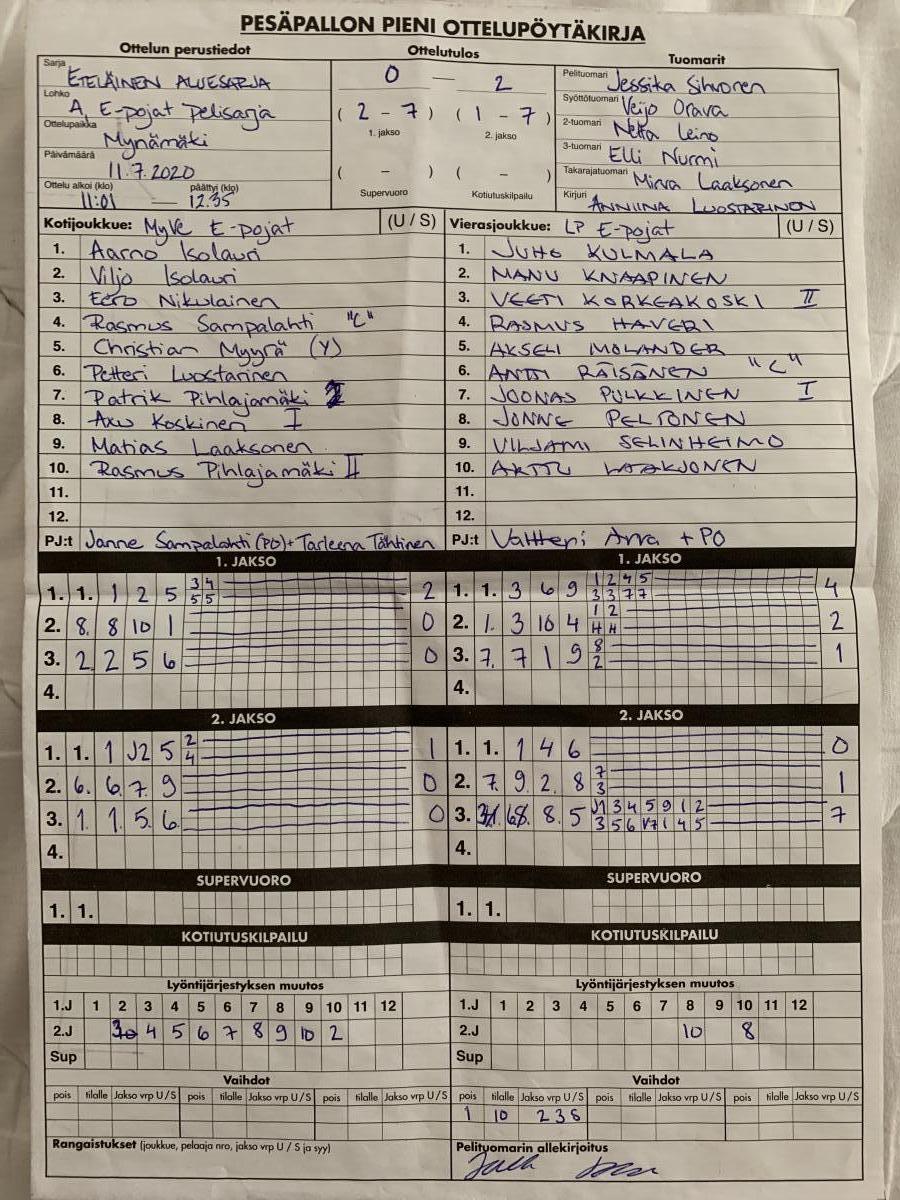 PESÄPALLON PIENI OTTELUPÖYTÄKIRJA
Ottelun perustiedot
Sarja
ETELÄINEN ALUESARJA
Lohko
A, E-pojat pelisarja
Ottelupaikka
Mynämäki
Päivämäärä
11.7.2020
Ottelu alkoi (klo) päättyi (klo)
11:01 — 12.35
Ottelutulos
0 — 2
( 2 - 7 ) ( 1 - 7 )
1. jakso 2. jakso
( - ) ( - )
Supervuoro Kotiutuskilpailu
Tuomarit
Pelituomari Jessika Sihvonen
Syöttötuomari Veijo Orava
2-tuomari Netta Leino
3-tuomari Elli Nurmi
Takarajatuomari Mirva Laaksonen
Kirjuri ANNIINA LUOSTARINEN
Kotijoukkue: MyVe E-pojat (U / S)
1. Aarno Isolauri
2. Viljo Isolauri
3. Eero Nikulainen
4. Rasmus Sampalahti "C"
5. Christian Myyrä (Y)
6. Petteri Luostarinen
7. Patrik Pihlajamäki
8. Axu Koskinen I
9. Matias Laaksonen
10. Rasmus Pihlajamäki II
11.
12.
PJ:t Janne Sampalahti (PO) + Tarleena Tähtinen
Vierasjoukkue: LP E-pojat (U / S)
1. JUHO KULMALA
2. MANU KNAAPINEN
3. VEETI KORKEAKOSKI II
4. RASMUS HAVERI
5. AKSELI MOLANDER
6. ANTTI RÄISÄNEN "C"
7. JOONAS PULKKINEN I
8. JONNE PELTONEN
9. VILJAMI SELINHEIMO
10. ARTTU LAAKSONEN
11.
12.
PJ:t Valtteri Arra + PO
1. JAKSO
1. 1. 1 2 5 3 4 2
5 5
2. 8. 8 10 1 0
3. 2 2 5 6 0
4.
1. JAKSO
1. 1. 3 6 9 1 2 4 5 4
3 3 7 7
2. 1. 3 10 4 1 2 2
4 4
3. 7. 7 1 9 8 1
2
4.
2. JAKSO
1. 1. 1 J2 5 2 1
4
2. 6. 6. 7. 9 0
3. 1. 1. 5. 6. 0
4.
2. JAKSO
1. 1. 1 4 6 0
2. 7. 9. 2. 8 7 1
3
3. 8. 5 J1 3 4 5 9 1 2 7
3 5 6 V7 1 4 5
4.
SUPERVUORO
1. 1.
SUPERVUORO
1. 1.
KOTIUTUSKILPAILU
KOTIUTUSKILPAILU
Lyöntijärjestyksen muutos
1.J 1 2 3 4 5 6 7 8 9 10 11 12
2.J 3 4 5 6 7 8 9 10 2
Sup
Lyöntijärjestyksen muutos
1.J 1 2 3 4 5 6 7 8 9 10 11 12
2.J 10 8
Sup
Vaihdot
pois tilalle Jakso vrp U / S pois tilalle Jakso vrp U / S pois tilalle Jakso vrp U / S
Vaihdot
pois tilalle Jakso vrp U / S pois tilalle Jakso vrp U / S pois tilalle Jakso vrp U / S
1 10 2 3 S
Rangaistukset (joukkue, pelaaja nro, jakso vrp U / S ja syy)
Pelituomarin allekirjoitus